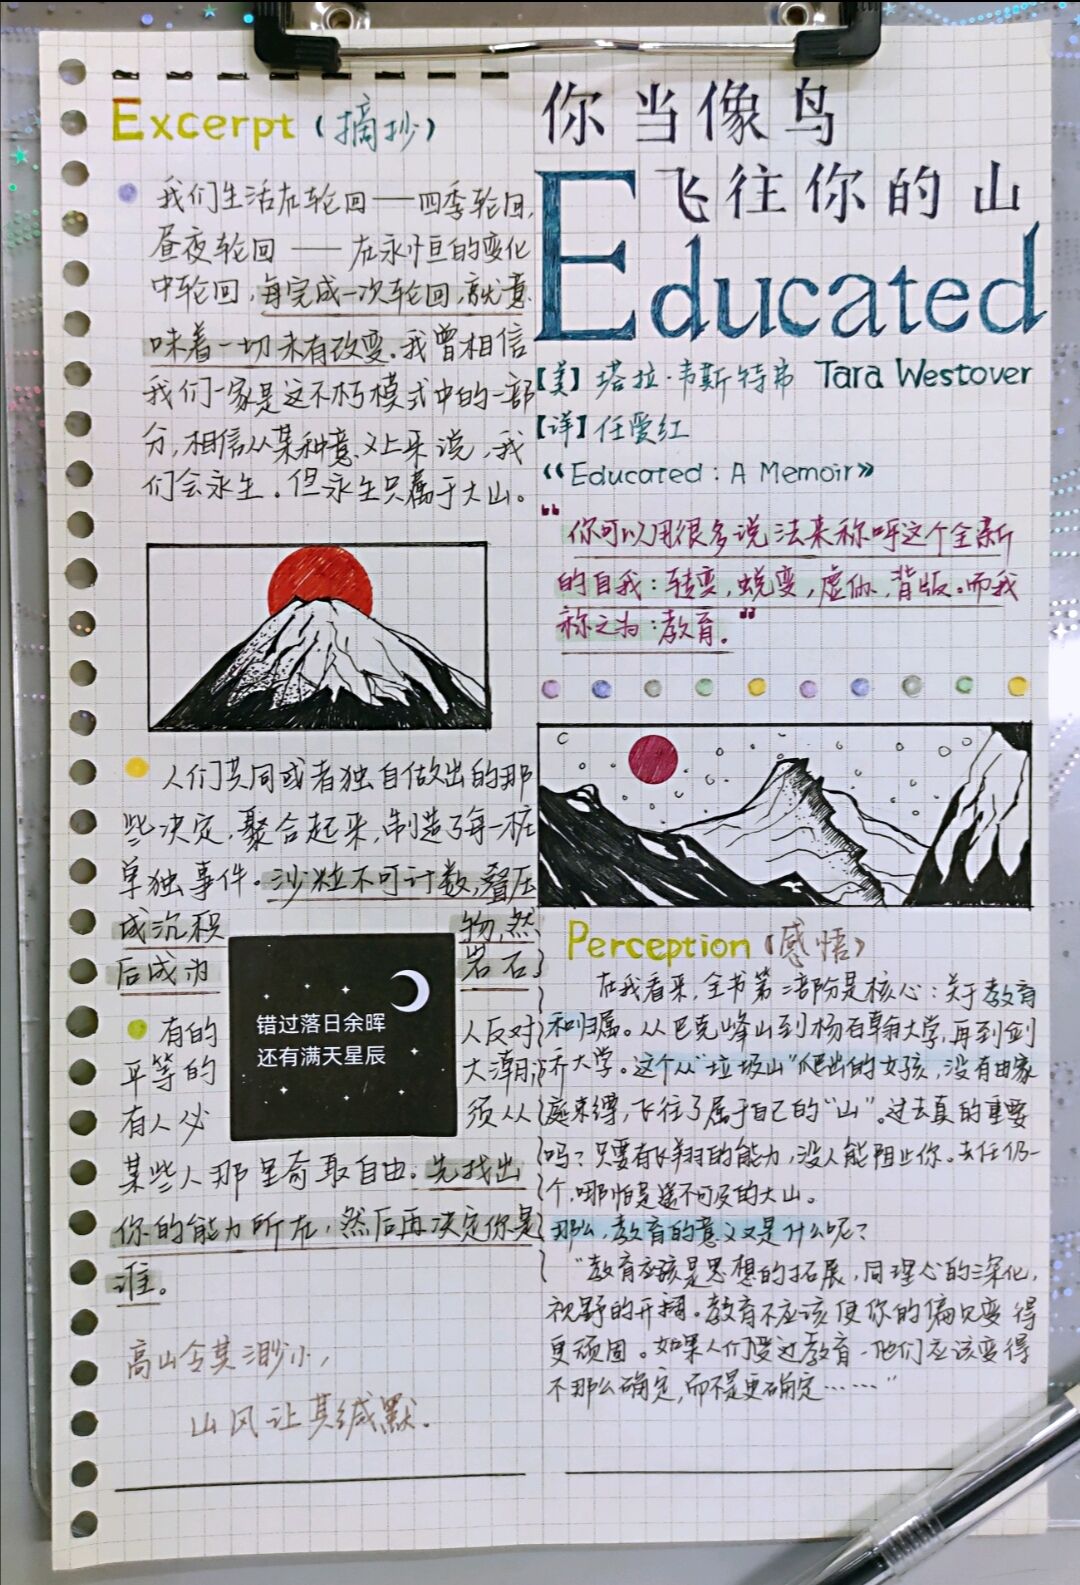 Excerpt（摘抄）
我们生活在轮回——四季轮回,
昼夜轮回——在永恒的变化
中轮回,每完成一次轮回,就意
味着一切未有改变。我曾相信
我们一家是这不朽模式中的一部
分,相信从某种意义上来说,我
们会永生。但永生只属于大山。
人们共同或者独自做出的那
些决定,聚合起来,制造了每一桩
单独事件。沙粒不可计数,叠压
成沉积 物,然
后成为 岩石
错过落日余晖
还有满天星辰
有的 人反对
平等的 大潮,
有人必 须从
某些人那里夺取自由。先找出
你的能力所在,然后再决定你是
谁。
高山令其渺小,
山风让其缄默.
你当像鸟
飞往你的山
Educated
【美】塔拉·韦斯特弗 Tara Westover
【译】任爱红
《Educated: A Memoir》
"你可以用很多说法来称呼这个全新
的自我：转变,蜕变,虚伪,背叛。而我
称之为：教育。"
Perception（感悟）
在我看来,全书第二部份是核心：关于教育
和归属。从巴克峰山到杨百翰大学,再到剑
桥大学。这个从"垃圾山"爬出的女孩,没有由家
庭束缚,飞往了属于自己的"山"。过去真的重要
吗？只要有飞翔的能力,没人能阻止你。去任何一
个,哪怕是遥不可及的大山。
那么,教育的意义是什么呢？
"教育应该是思想的拓展,同理心的深化,
视野的开阔。教育不应该使你的偏见变得
更顽固。如果人们受过教育,他们应该变得
不那么确定,而不是更确定……"